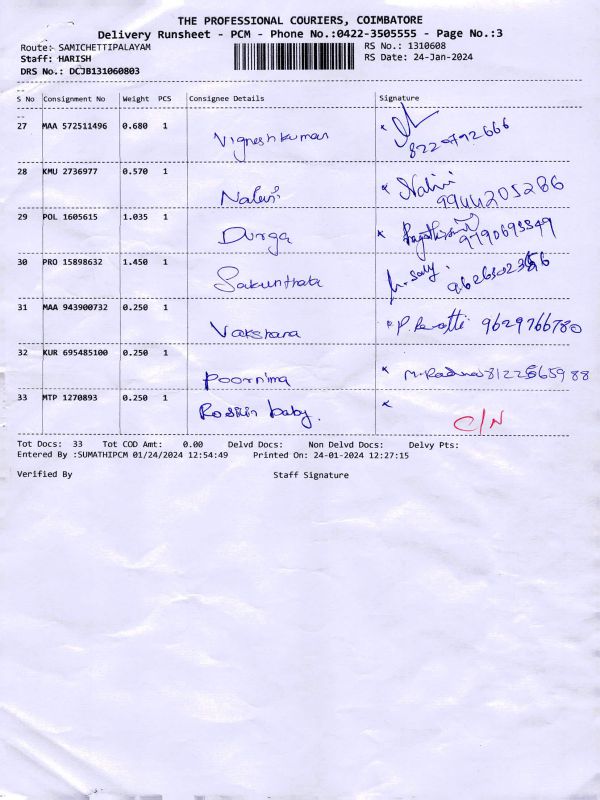 THE PROFESSIONAL COURIERS, COIMBATORE
Delivery Runsheet - PCM - Phone No.:0422-3505555 - Page No.:3
Route:- SAMICHETTIPALAYAM RS No.: 1310608
Staff: HARISH RS Date: 24-Jan-2024
DRS No.: DCJB131060803
S No Consignment No Weight PCS Consignee Details Signature
27 MAA 572511496 0.680 1 Vigneshkumar
28 KMU 2736977 0.570 1 Nalini Nalini 9944205286
29 POL 1605615 1.035 1 Durga 9790693349
30 PRO 15898632 1.450 1 Sakunthala
31 MAA 943900732 0.250 1 Varshana 9629766780
32 KUR 695485100 0.250 1 Poornima
33 MTP 1270893 0.250 1 Roslin baby. C/N
Tot Docs: 33 Tot COD Amt: 0.00 Delvd Docs: Non Delvd Docs: Delvy Pts:
Entered By :SUMATHIPCM 01/24/2024 12:54:49 Printed On: 24-01-2024 12:27:15
Verified By Staff Signature